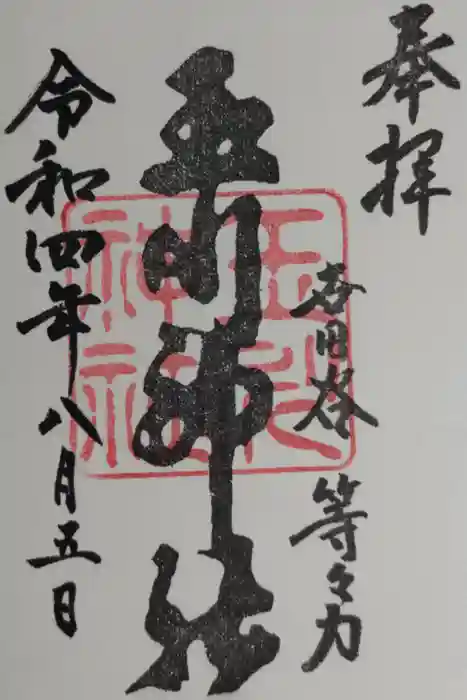 奉拝
世田谷 等々力
玉川神社
玉川
神社
令和四年八月五日